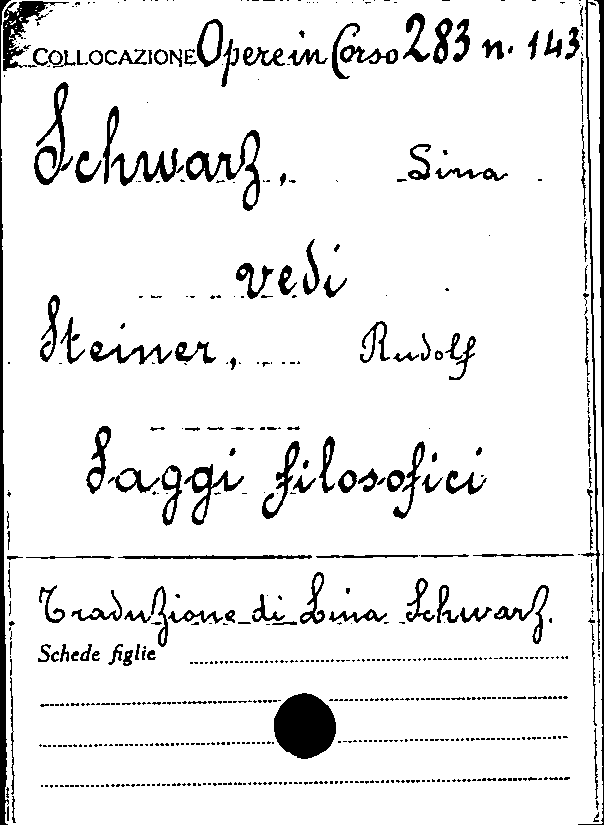 COLLOCAZIONE Opere in Corso 283 n. 143
Schwarz, Lina
vedi
Steiner, Rudolf
Saggi filosofici
Traduzione di Lina Schwarz.
Schede figlie